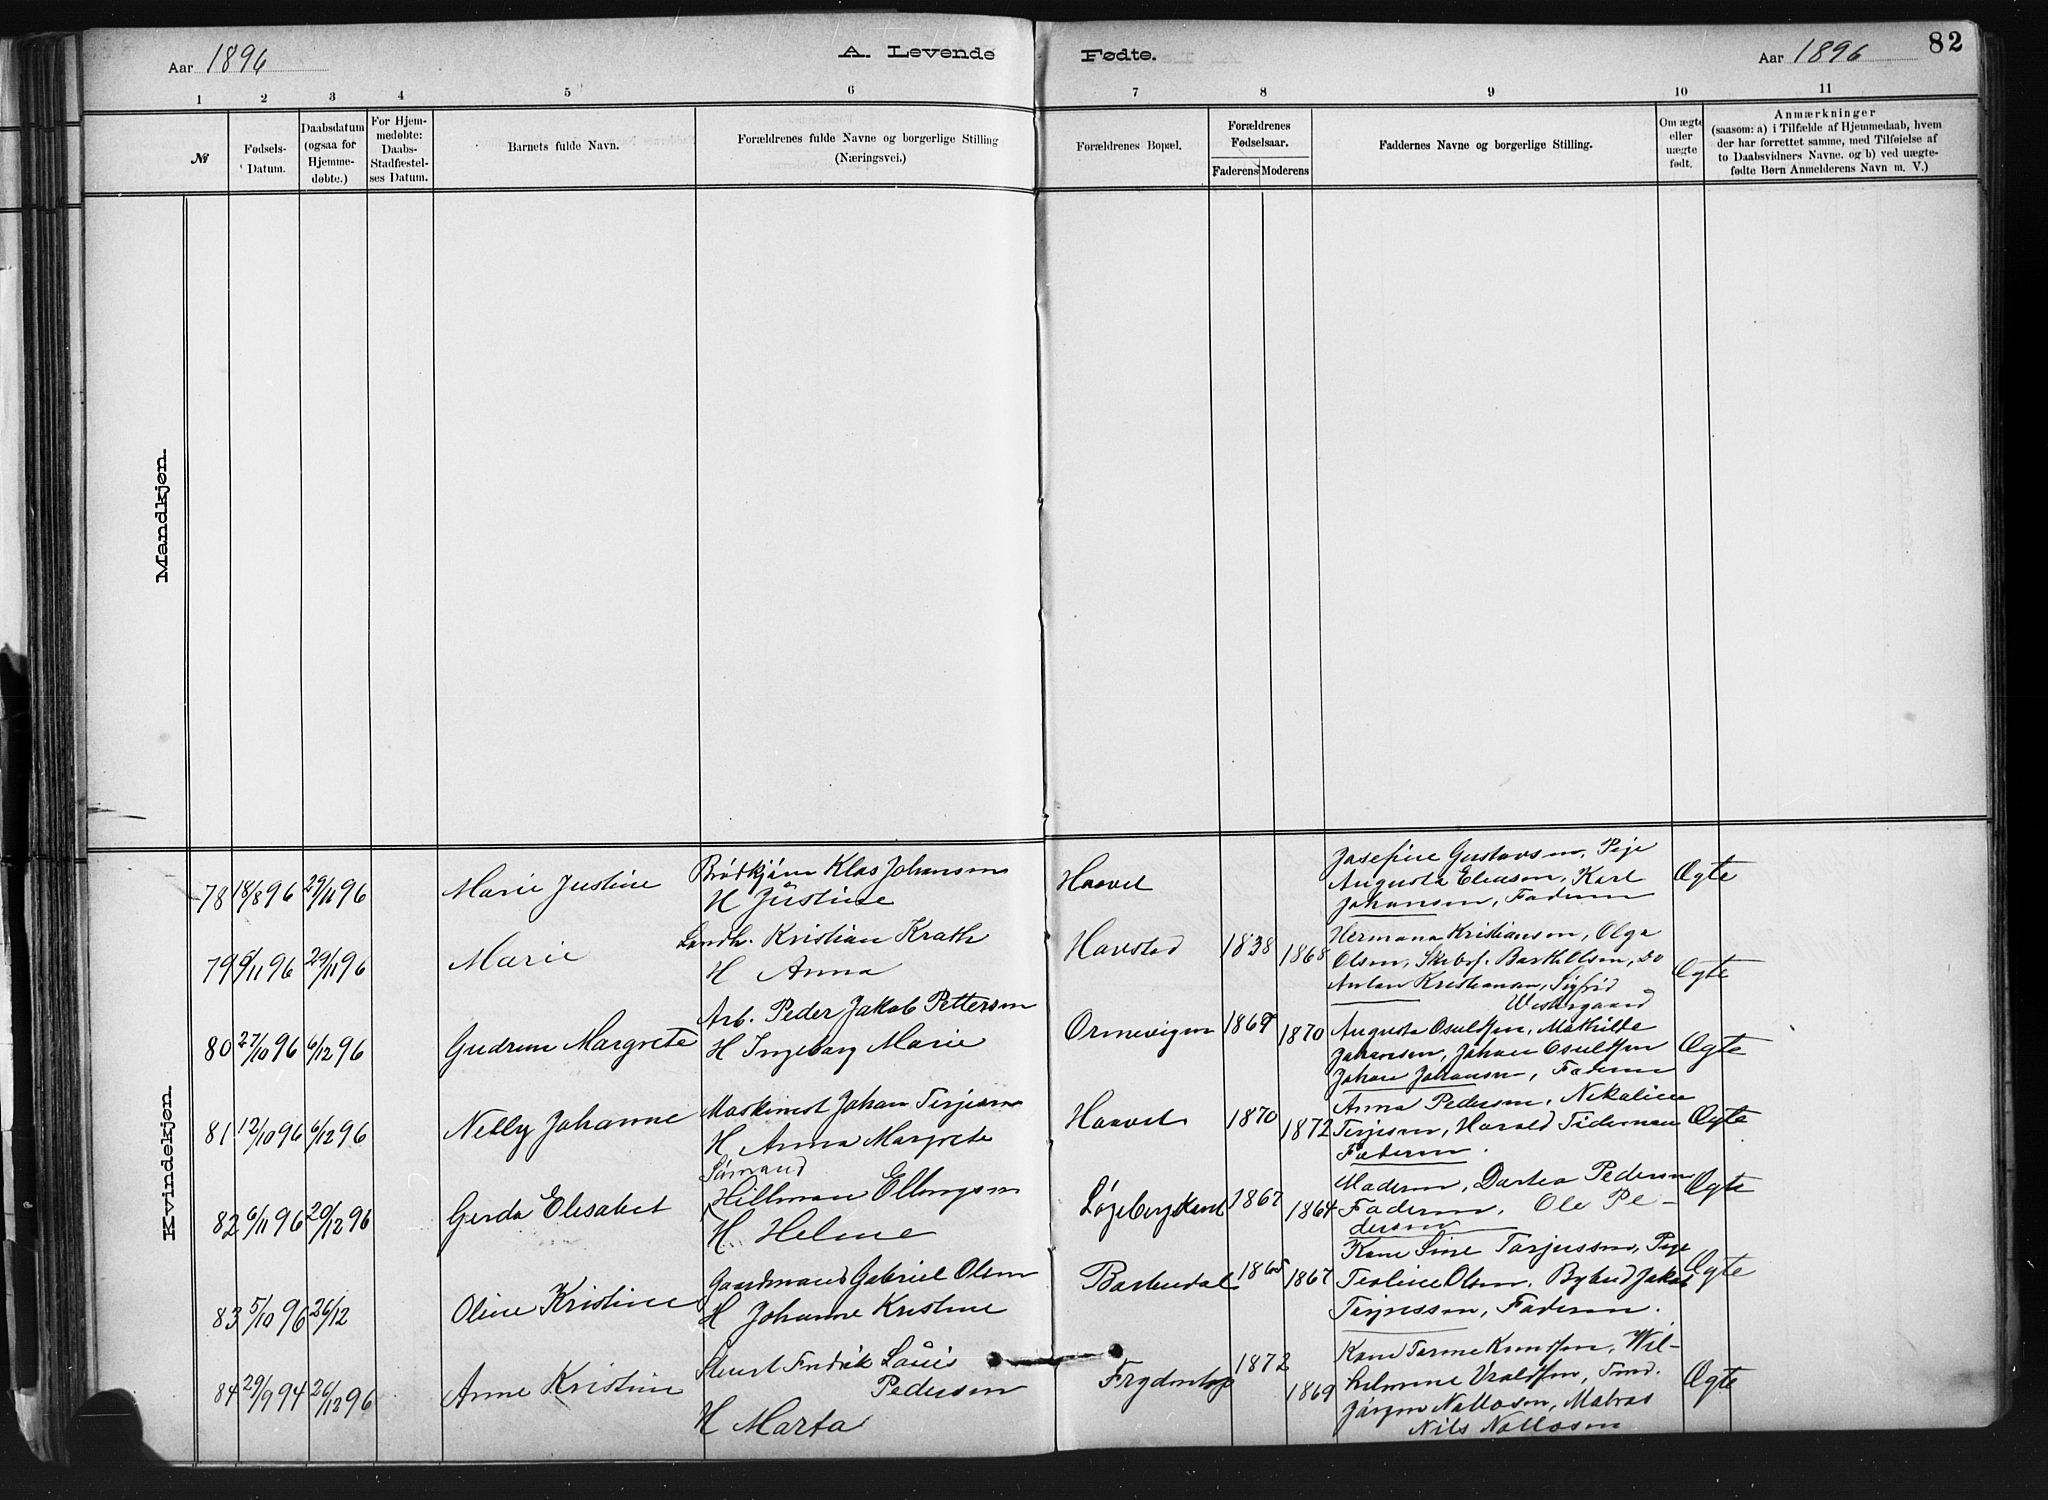 Aar 1896
A. Levende Fødte.
Aar 1896
82
1 2 3 4 5 6 7 8 9 10 11
№
Fødsels-Datum.
Daabsdatum (ogsaa for Hjemme-døbte.)
For Hjem-medøbte: Daabs-Stadfæstel-ses Datum.
Barnets fulde Navn.
Forældrenes fulde Navne og borgerlige Stilling (Næringsvei.)
Forældrenes Bopæl.
Forældrenes Fødselsaar.
Faderens Moderens
Faddernes Navne og borgerlige Stilling.
Om ægte eller uægte født.
Anmærkninger
(saasom: a) i Tilfælde af Hjemmedaab, hvem
der har forrettet samme, med Tilføielse af
to Daabsvidners Navne. og b) ved uægte-
fødte Børn Anmelderens Navn m. V.)
Mandkjøn.
Kvindekjøn.
78 18/8 96 29/11 96 Marie Justine Klas Johansen
H Justine
Haavet
Josefine Gustavsen, Pige
Augusta Eliasen, Karl
Johansen, Faderen
Ægte
79 9/11 96 29/11 96 Marie Landh. Kristian Krath
H Anna
Havstad 1838 1868
Hermana Kristiansen, Olga
Olsen, Barth Olsen, Do
Anton Kristiansen, Sigfrid
Westergaard
Ægte
80 27/10 96 6/12 96 Gudrun Margrete Arb. Peder Jakob Pettersen
H Ingeborg Marie
Ormevigen 1870
Augusta Osuldsen, Mathilde
Johansen, Johan Osuldsen
Johan Johansen, Faderen
Ægte
81 12/10 96 6/12 96 Nelly Johanne Maskinist Johan Terjesen
H Anna Margrete
Haavet 1870 1872
Anna Pedersen, Nikaline
Terjesen, Harald Tideman
Faderen.
Ægte
82 6/11 96 20/12 96 Gerda Elisabet Sömand
Hillman Ellingsen
H. Helene
1867 1864
Moderen, Dortea Pedersen
Faderen, Ole Pe-
dersen
Ægte
83 5/10 96 26/12 Oline Kristine Gaardmand Gabriel Olsen
H Johanne Kristine
Barbudal 1865 1867
Kone Sine Tarjussen, Pige
Teoline Olsen. Jakob
Terjussen, Faderen.
Ægte
84 29/9 94 26/12 96 Anne Kristine Fredrik Louis
Pedersen
H Marta
1872 1869
Kone Tarine Knudsen, Wil-
helmine
Jörgen Nallosen, Matros
Nils Nallosen
Ægte